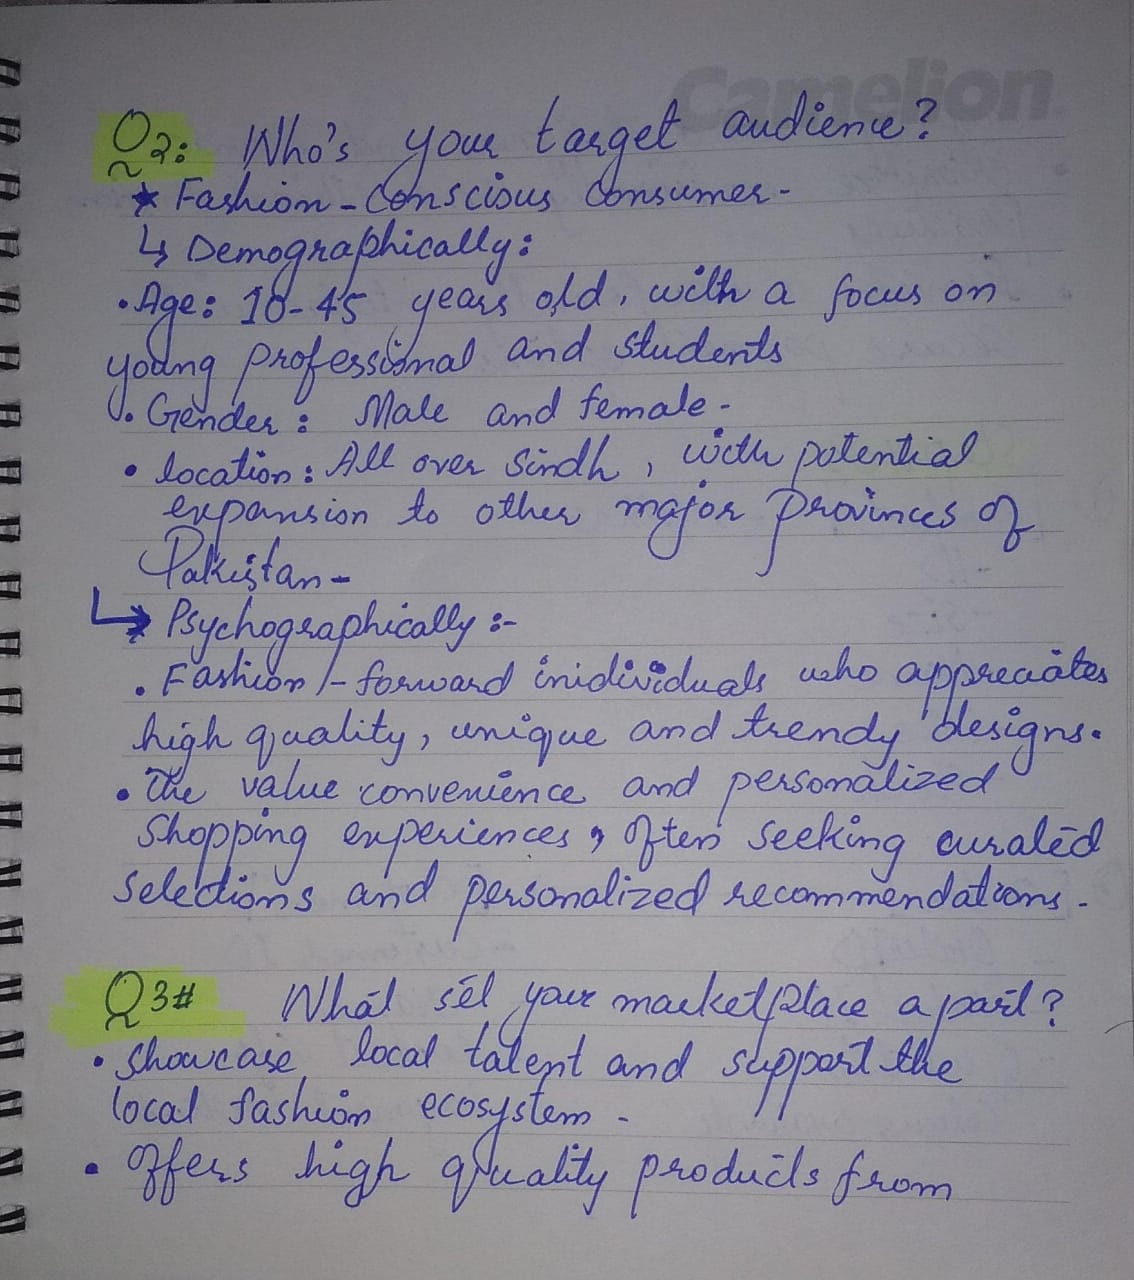 Camelion
Q2: Who's your target audience?
★ Fashion-Conscious Consumer-
↳ Demographically:
• Age: 18-45 years old, with a focus on
young professional and students
• Gender: Male and female-
• location: All over Sindh, with potential
expansion to other major provinces of
Pakistan-
↳ Psychographically:-
• Fashion/-forward inidividuals who appreciates
high quality, unique and trendy designs.
• The value convenience and personalized
Shopping experiences, often seeking curated
Selections and personalized recommendations.
Q3# What set your marketplace apart?
• Showcase local talent and support the
local fashion ecosystem-
• offers high quality products from